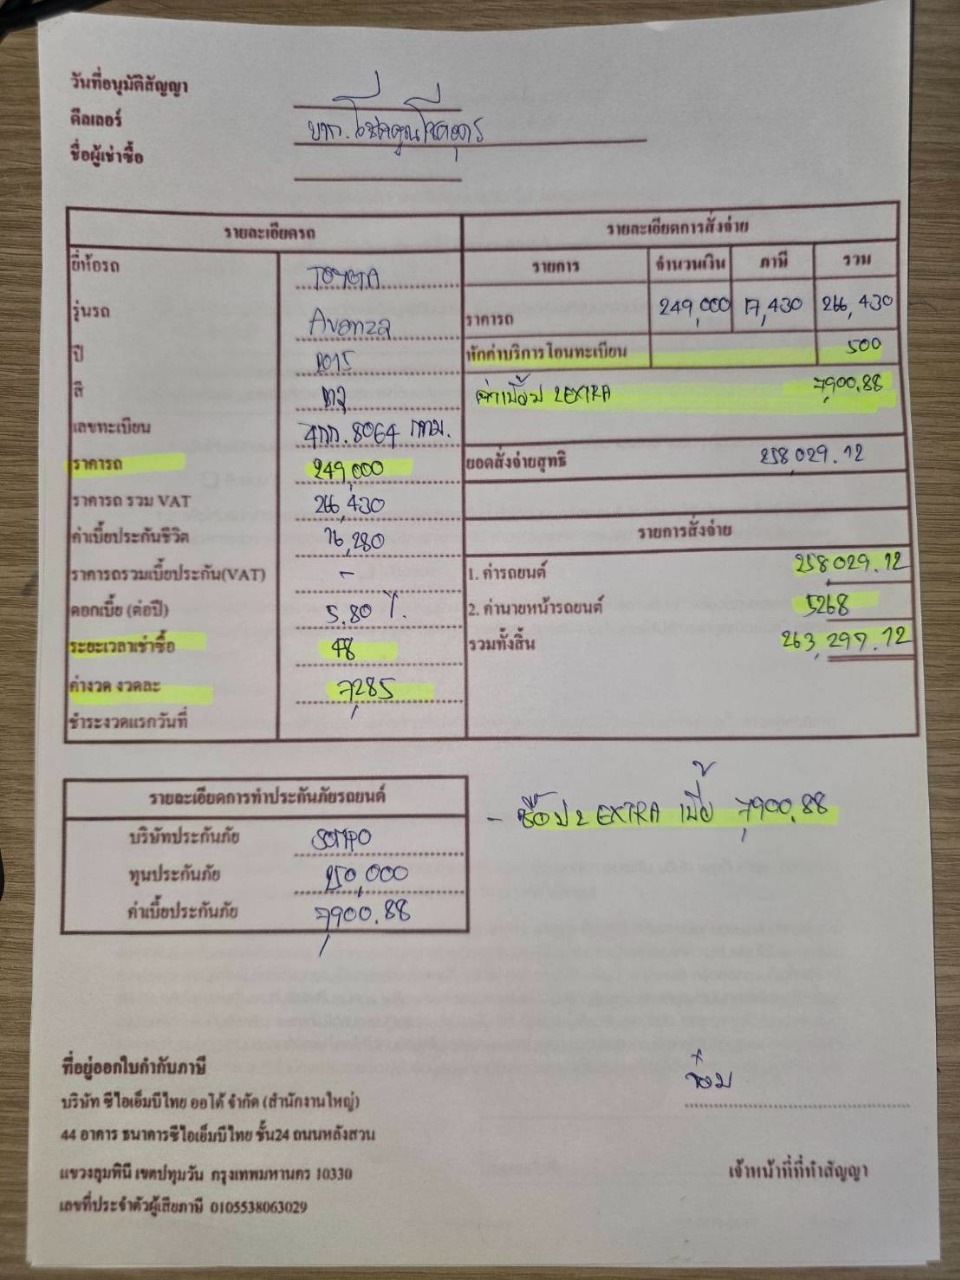 วันที่อนุมัติสัญญา
ดีลเลอร์ บจก. โชคคูณโชคอุดร
ชื่อผู้เช่าซื้อ
รายละเอียดรถ
ยี่ห้อรถ TOYOTA
รุ่นรถ Avanza
ปี 2015
สี เทา
เลขทะเบียน 4กก.8064 กทม.
ราคารถ 249,000
ราคารถ รวม VAT 266,430
ค่าเบี้ยประกันชีวิต 16,280
ราคารถรวมเบี้ยประกัน(VAT) -
ดอกเบี้ย (ต่อปี) 5.80 %.
ระยะเวลาเช่าซื้อ 48
ค่างวด งวดละ 7,285
ชำระงวดแรกวันที่
รายละเอียดการสั่งจ่าย
รายการ จำนวนเงิน ภาษี รวม
ราคารถ 249,000 17,430 266,430
หักค่าบริการโอนทะเบียน 500
ค่าเบี้ย ป 2EXTRA 7,900.88
ยอดสั่งจ่ายสุทธิ 258,029.12
รายการสั่งจ่าย
1. ค่ารถยนต์ 258,029.12
2. ค่านายหน้ารถยนต์ 5268
รวมทั้งสิ้น 263,297.12
รายละเอียดการทำประกันภัยรถยนต์
บริษัทประกันภัย SOMPO
ทุนประกันภัย 250,000
ค่าเบี้ยประกันภัย 7,900.88
- ซื้อ ป 2 EXTRA เบี้ย 7,900.88
ที่อยู่ออกใบกำกับภาษี
บริษัท ซีไอเอ็มบีไทย ออโต้ จำกัด (สำนักงานใหญ่)
44 อาคาร ธนาคารซีไอเอ็มบีไทย ชั้น24 ถนนหลังสวน
แขวงลุมพินี เขตปทุมวัน กรุงเทพมหานคร 10330
เลขที่ประจำตัวผู้เสียภาษี 0105538063029
เจ้าหน้าที่ที่ทำสัญญา